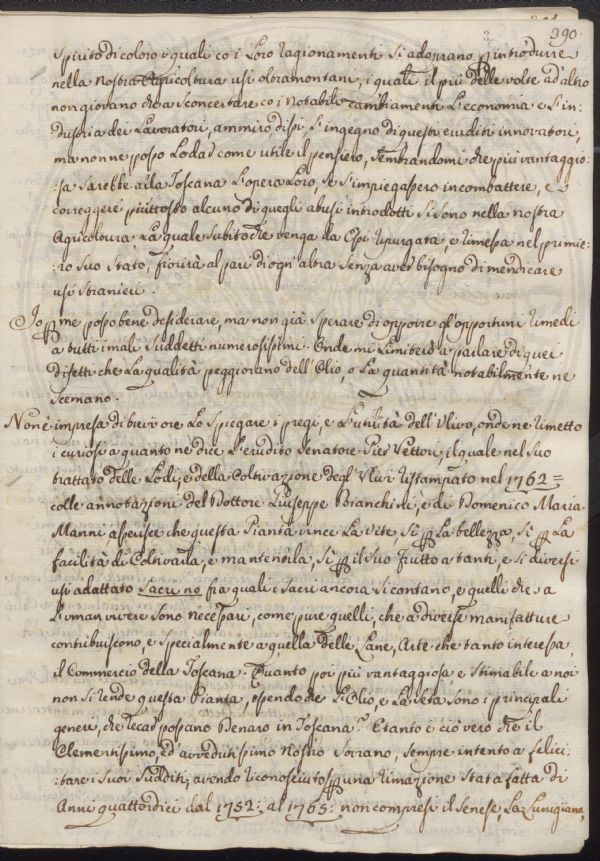 390
spirito di coloro i quali co i Loro ragionamenti si adoprano p introdurre
nella nostra Agricoltura usi oltramontani, i quali il più delle volte ad altro
non giovano che a sconcertare co i notabili cambiamenti L'economia e L'in-
dustria dei Lavoratori, ammiro dissi, L'ingegno di questi eruditi innovatori,
ma non ne posso Lodar come utile il pensiero, sembrandomi che più vantaggio-
:sa sarebbe alla Toscana L'opera Loro, se s'impiegassero in combattere, e
correggere piuttosto alcuno di quegli abusi introdotti si sono nella nostra
Agricoltura, La quale subito che venga da Essi ripurgata, e rimessa nel primie-
:ro suo stato, fiorirà al pari di ogn'altra senza aver bisogno di mendicare
usi stranieri.
Io p me posso bene desiderare, ma non già sperare di opporre gl'opportuni rimedi
a tutti i mali suddetti numerosissimi. Onde mi Limiterò a parlare di quei
difetti che La qualità peggiorano dell'Olio, o La quantità notabilmente ne
scemano.
Non è impresa di brevi ore Lo spiegare i pregi, e L'utilità dell'Ulivo, onde ne rimetto
i curiosi a quanto ne dice L'erudito Senatore Pier Vettori, il quale nel suo
trattato delle Lodi, e della Coltivazione degl'Ulivi ristampato nel 1762=
colle annotazioni del Dottore Giuseppe Bianchini, e di Domenico Maria
Manni asserisce che questa Pianta vince La Vite si p La bellezza, si p La
facilità di Coltivarla, e mantenerla, si p il suo frutto a tanti, e si diversi
usi adattato Sacri no fra quali i Sacri ancora si contano, e quelli che a
L'uman vivere sono necessari, come pure quelli, che a diverse manifatture
contribuiscono, e specialmente a quella delle Lane, Arte che tanto interessa,
il Commercio della Toscana. Quanto poi più vantaggiosa e stimabile a noi
non si rende questa Pianta, essendo che L'Olio, e La Seta sono i principali
generi, che recar possano Denaro in Toscana? E tanto è ciò vero che il
Clementissimo, ed avvedutissimo Nostro Sovrano, sempre intento a felici:
:tare i suoi sudditi, avendo riconosciuto p una rimazione stata fatta di
Anni quattordici dal 1752: al 1765: non compresi il Senese, La Lunigiana,